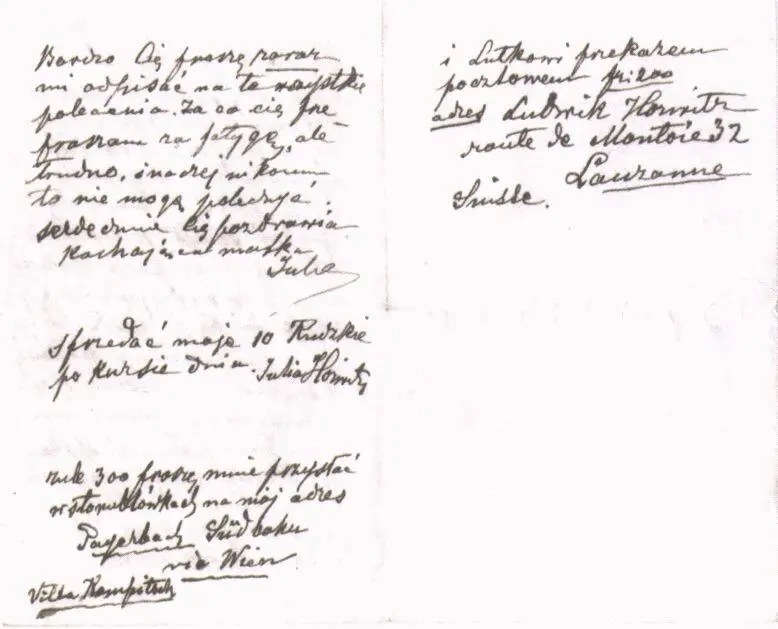 Bardzo Cię proszę zaraz
mi odpisać na te wszystkie
polecenia. Za co cię prze
praszam za fatygę, ale
trudno, inaczej nikomu
to nie mogę poleczyć.
serdecznie Cię pozdrawia
kochająca matka
Julia
sprzedać moje 10 Rudzkie
po kursie dnia. Julia Horwitz
rub 300 proszę mnie przysłać
w storublówkach na mój adres
Payerbach Südbahn
via Wien
Villa Kampitsch
i Lutkowi przekazem
pocztowem fr: 200
adres Ludwik Horwitz
route de Montoie 32
Lauzanne
Suisse.